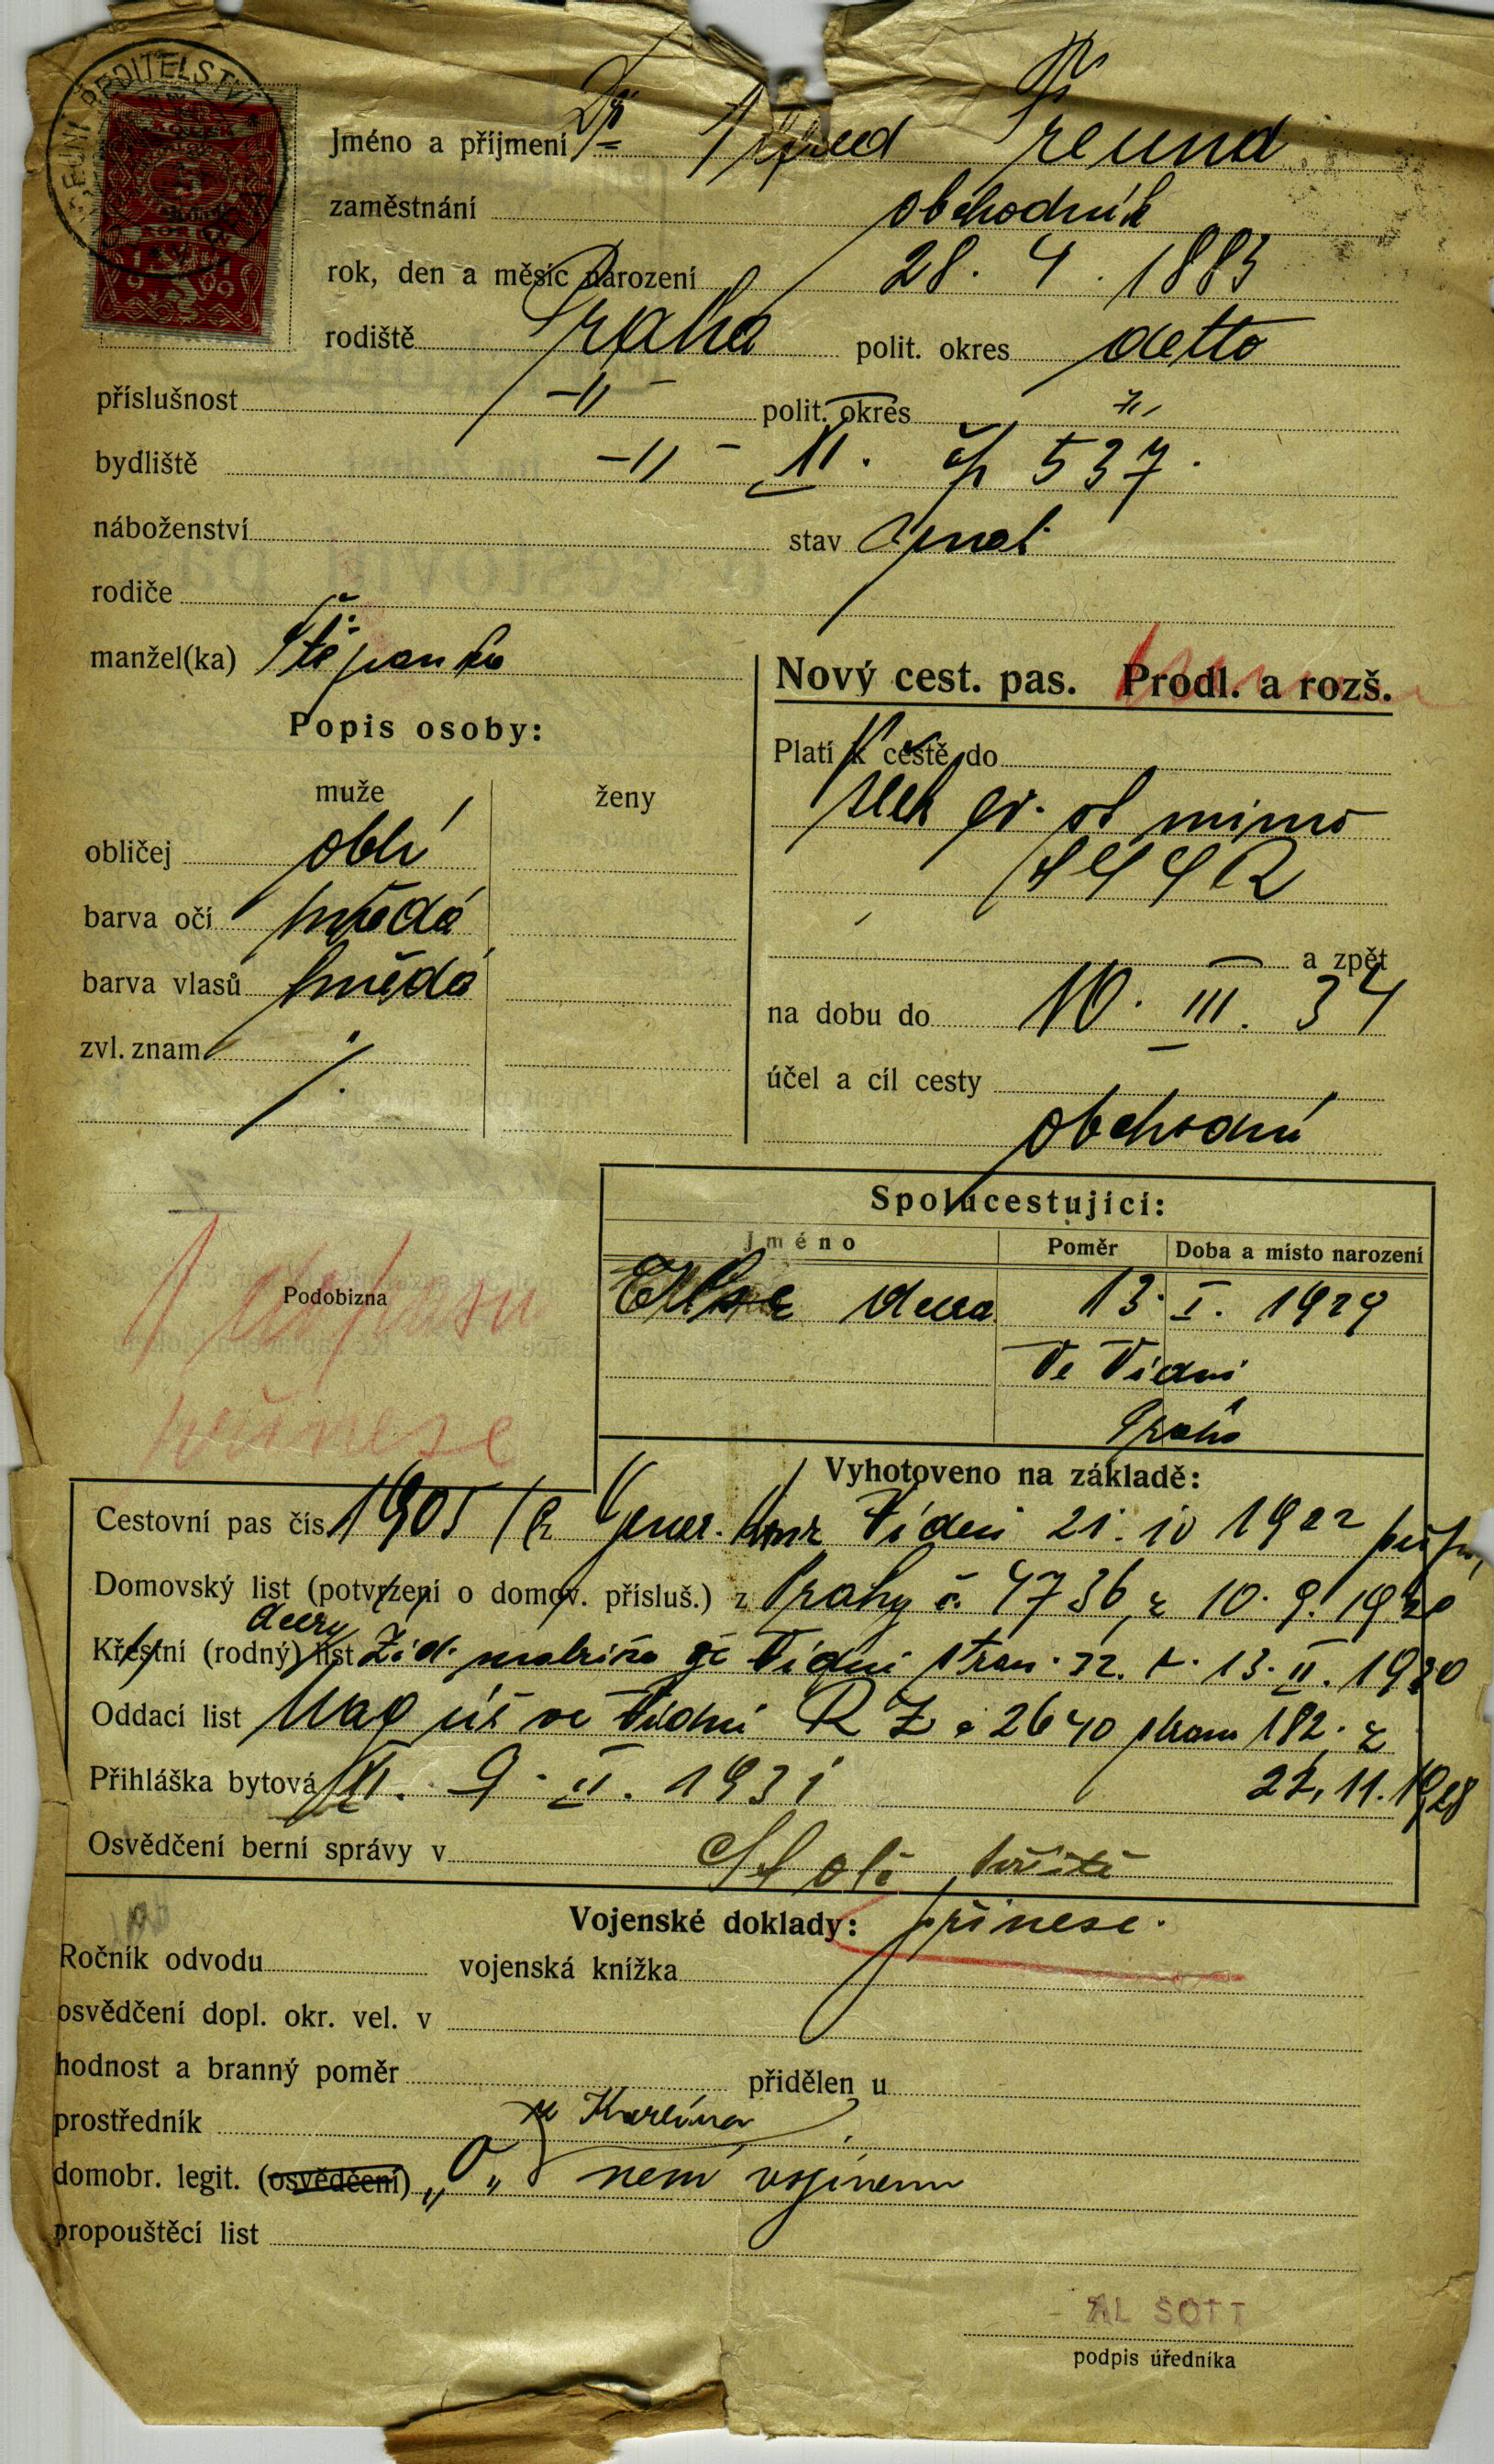 Jméno a příjmení Alfred Freund
zaměstnání obchodník
rok, den a měsíc narození 28. 4. 1883
rodiště Praha polit. okres detto
příslušnost -"- polit. okres "
bydliště -"- XI. čp 537.
náboženství stav ženat
rodiče
manžel(ka) Štěpanka
Nový cest. pas. Prodl. a rozš.
Popis osoby:
Platí k cestě do
muže ženy
všech ev. st mimo
SSSR
obličej oblý
barva očí hnědá
a zpět
barva vlasů hnědá
na dobu do 10. III. 34
zvl. znam
účel a cíl cesty
obchodní
Spolucestující:
Jméno Poměr Doba a místo narození
Podobizna
Ellse dcera 13. I. 1929
ve Vídni
Praha
přinese
Vyhotoveno na základě:
Cestovní pas čís. 1905 Gener. konz Vídeň 21. 10 1922
Domovský list (potvrzení o domov. přísluš.) z Prahy č. 4736 z 10. 9. 1920
dcery
Křestní (rodný) list Žid. matrika ve Vídni stran. 32. 13. II. 1930
Oddací list Mag úř ve Vídni R Z 2640 stran 182. z
22. 11. 1928
Přihláška bytová XI. 9. II. 1931
Osvědčení berní správy v
příště
Vojenské doklady: přinese.
Ročník odvodu vojenská knížka
osvědčení dopl. okr. vel. v
hodnost a branný poměr přidělen u
prostředník z Karlína
domobr. legit. (osvědčení) „O“ není vojínem
propouštěcí list
AL SOTT
podpis úředníka